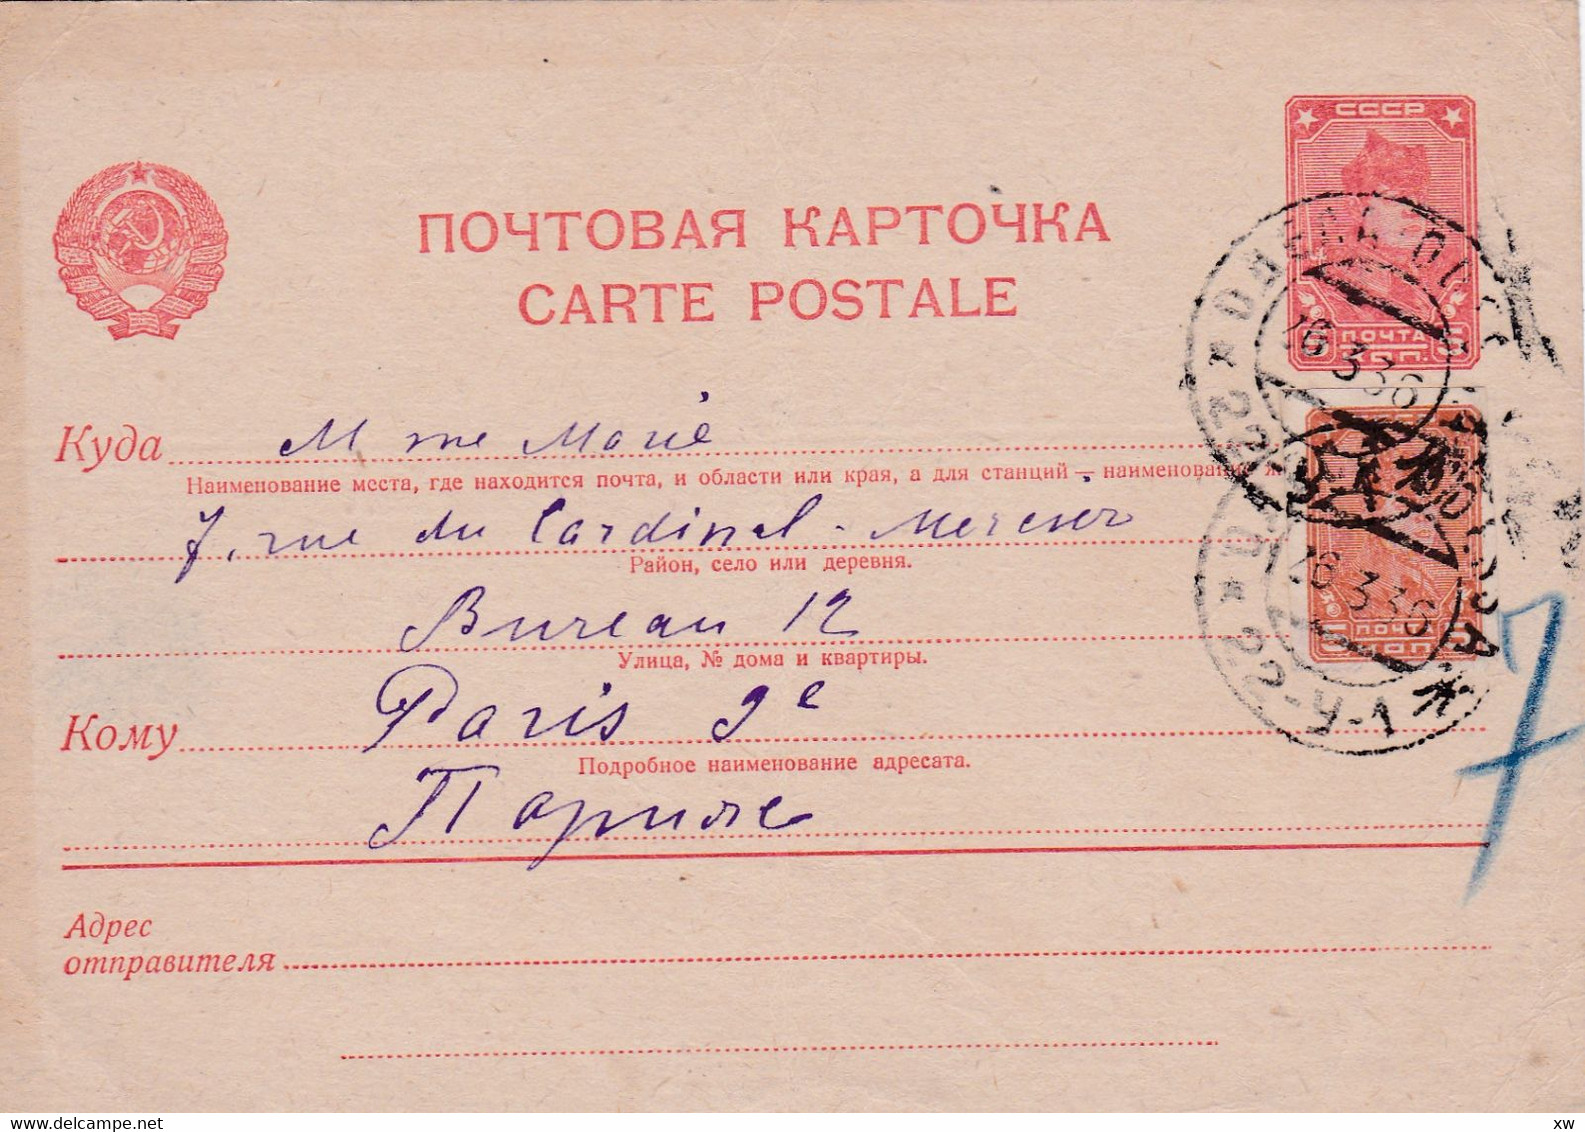 СССР
ПОЧТОВАЯ КАРТОЧКА
CARTE POSTALE
ПОЧТА
КОП.
16 3 36
Куда Mme Marie
Наименование места, где находится почта, и области или края, а для станций — наименование
7, rue du Cardinal-Mercier
Район, село или деревня.
16 3 36
Bureau 12
ПОЧТА
КОП.
Улица, № дома и квартиры.
Кому Paris 9e
Подробное наименование адресата.
Париж
7
Адрес
отправителя
www.delcampe.net
xw